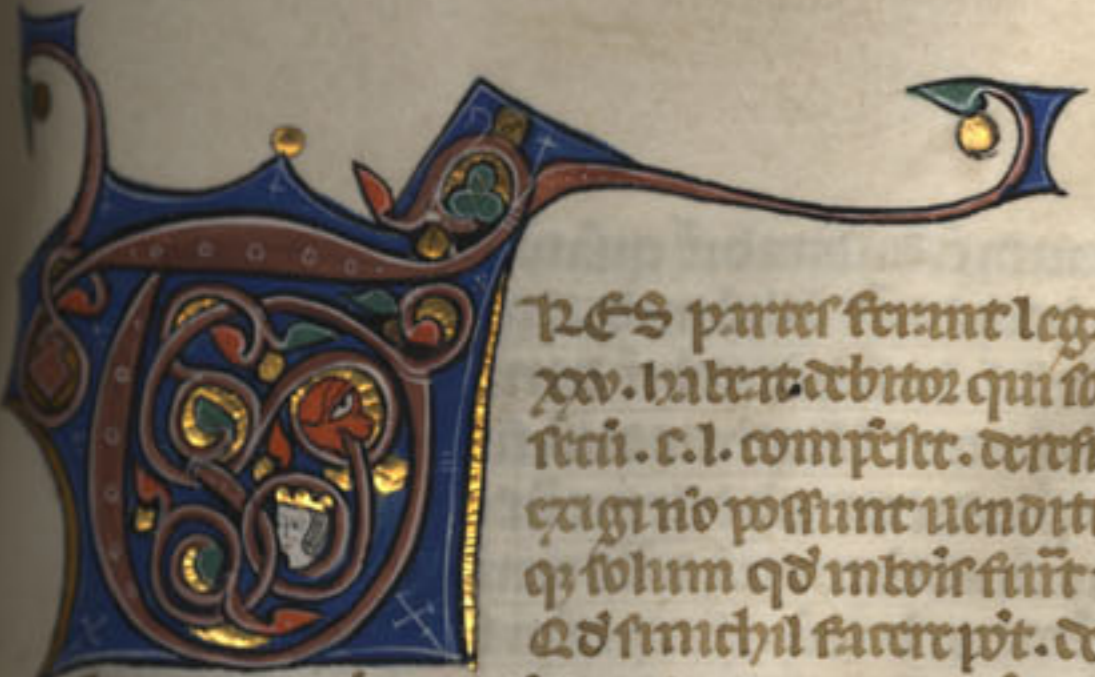 TRES partes ferant leg
xxv. habeat debitor qui so
secū. c. l. compēset. de res
exigi nō possunt uendit
qz solum qd̄ in bōis fuīt
Qd̄ si nichil facere pōt. de